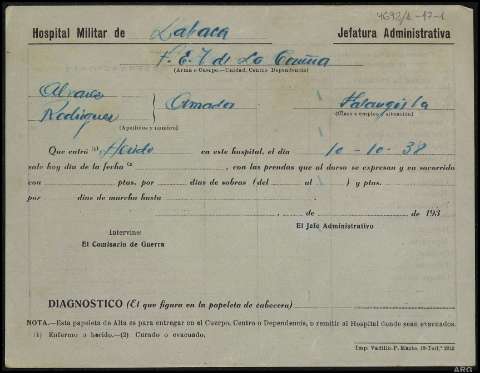 4692/1-17-1
Hospital Militar de Labaca Jefatura Administrativa
F. E. T. de La Coruña
(Arma o Cuerpo.-Unidad, Centro Dependencia)
Alvarez
Rodriguez } Amador Falangista
(Apellidos y nombre) (Clase o empleo y situación)
Que entró (1) Herido en este hospital, el día 10-10-38
sale hoy día de la fecha (2 , con las prendas que al dorso se expresan y va socorrido
con ptas. por días de sobras (del al ) y ptas.
por días de marcha hasta
, de de 193
Intervine: El Jefe Administrativo
El Comisario de Guerra
DIAGNOSTICO (El que figura en la papeleta de cabecera)
NOTA.—Esta papeleta de Alta es para entregar en el Cuerpo, Centro o Dependencia, o remitir al Hospital donde sean evacuados.
(1) Enfermo o herido.—(2) Curado o evacuado.
Imp. Vadillo.
ARG